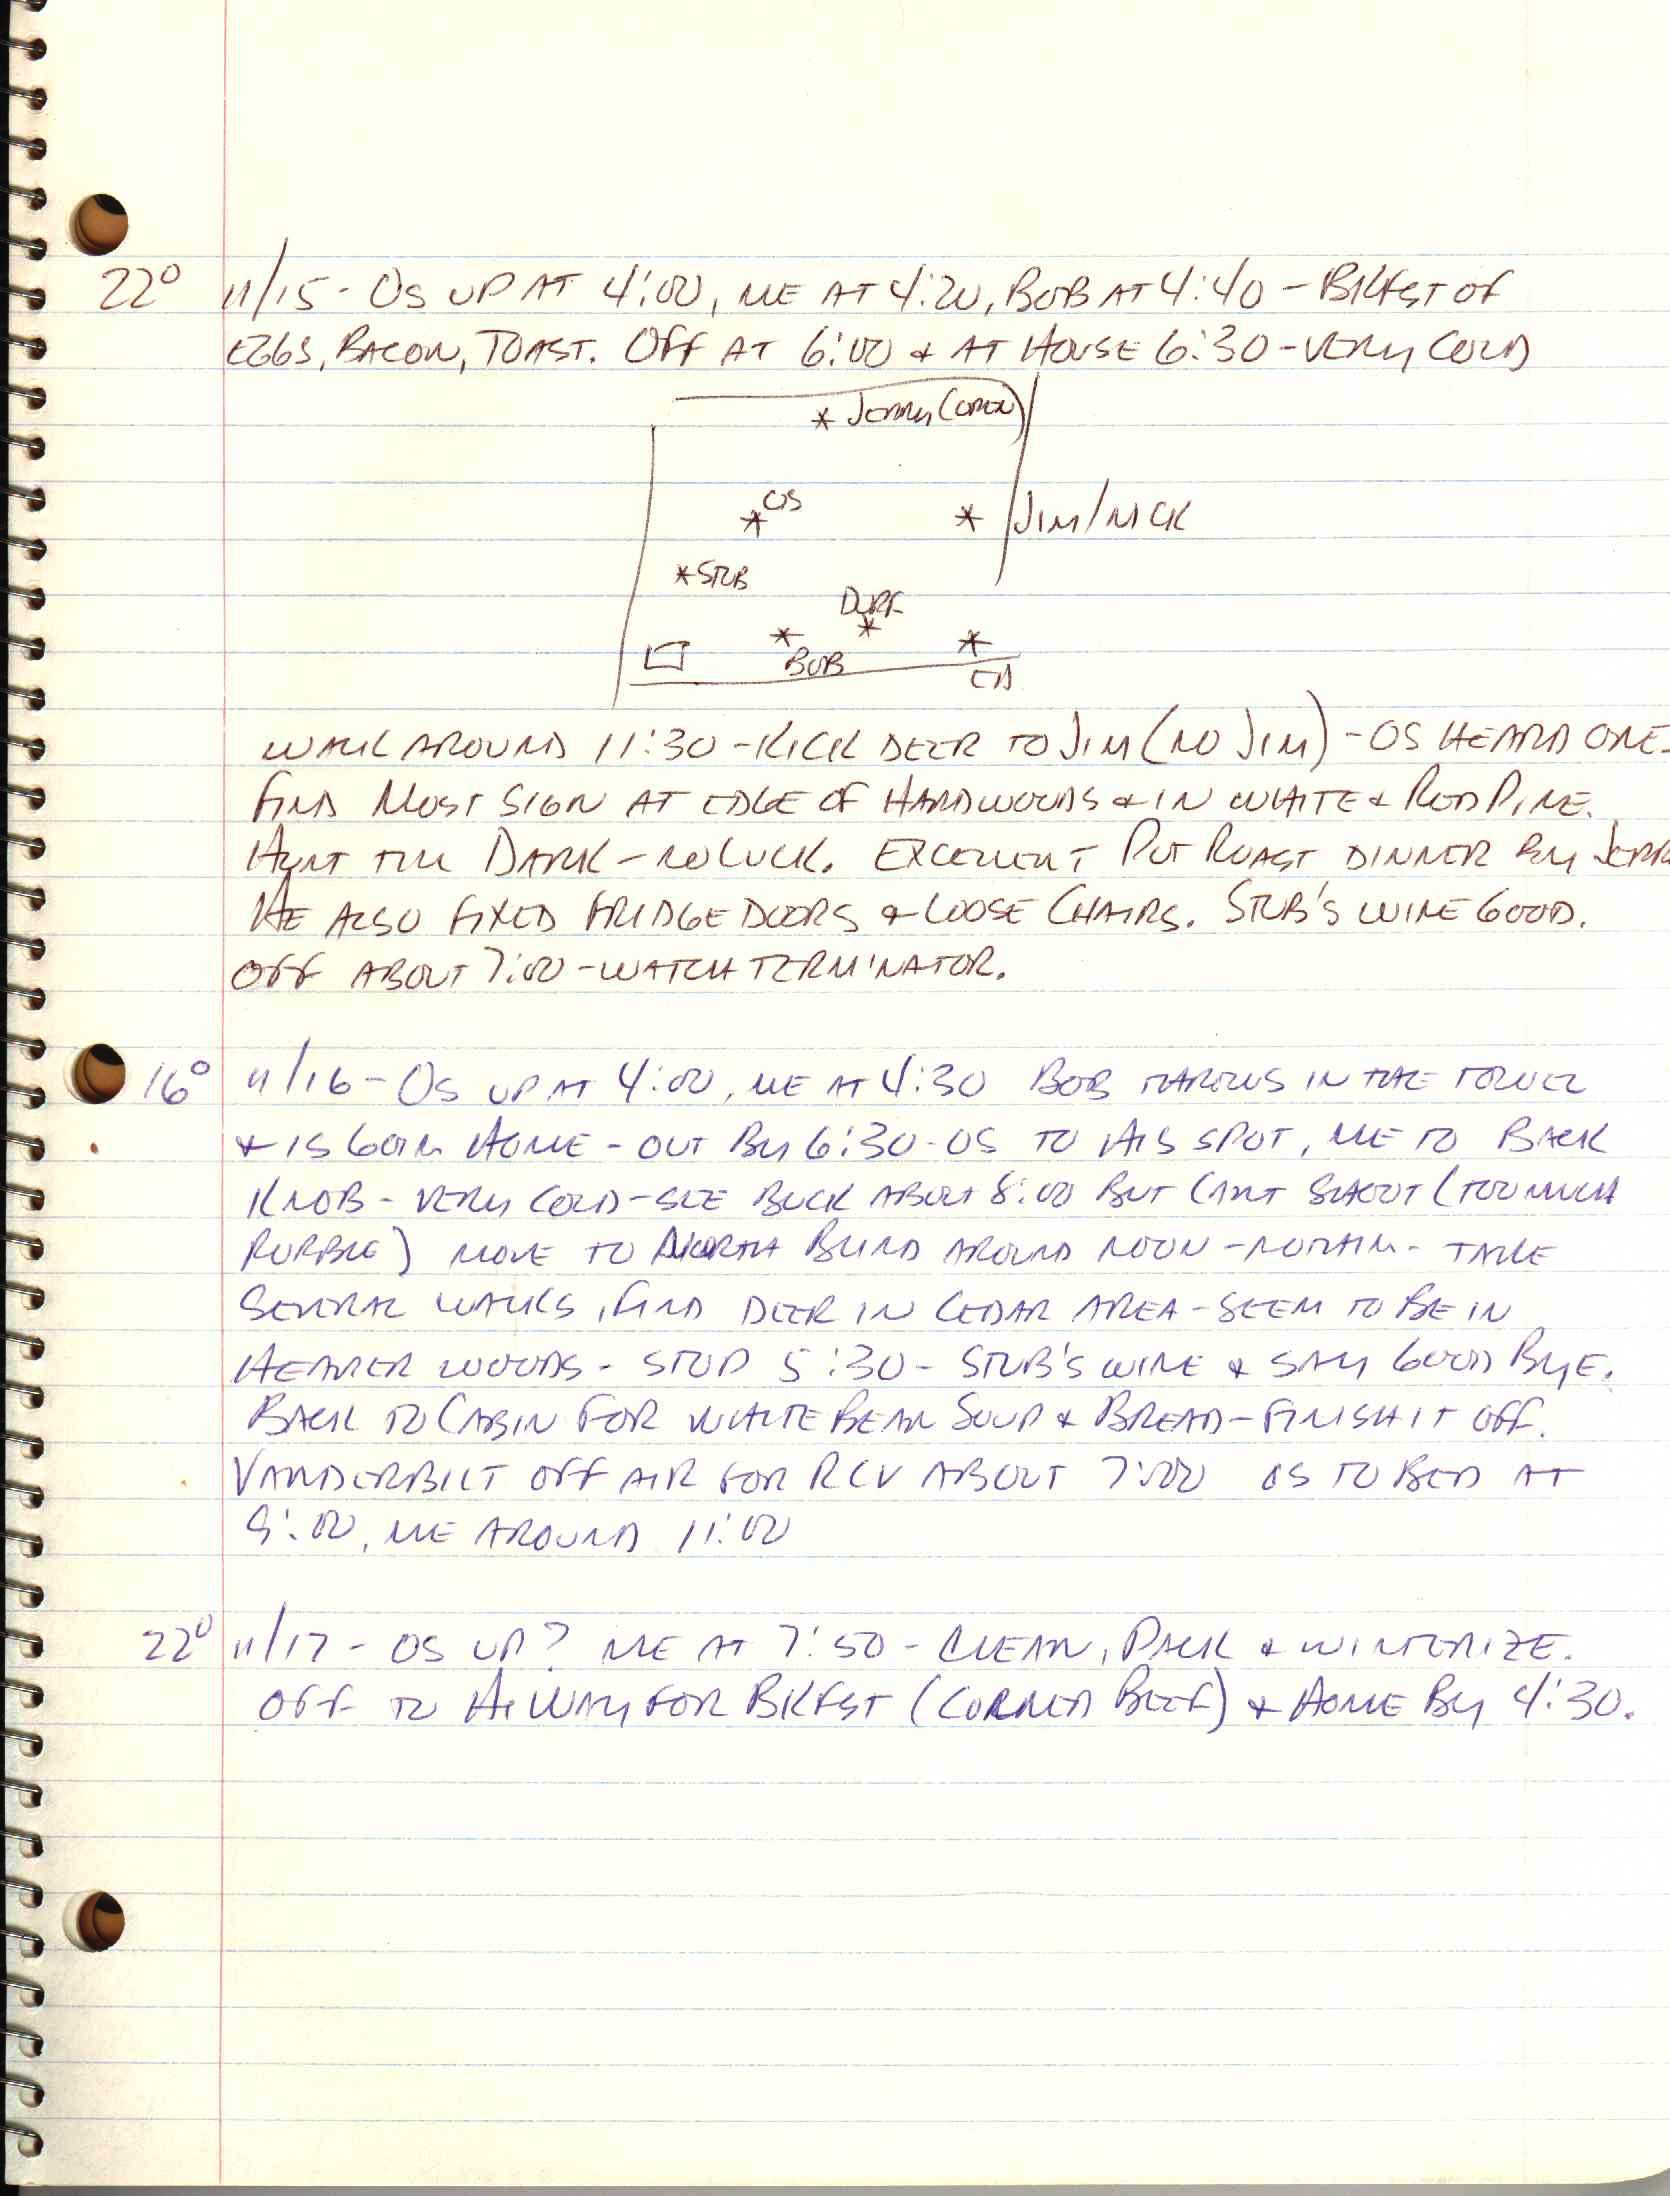 22° 11/15 - OS UP AT 4:00, ME AT 4:20, BOB AT 4:40 - BKFST OF
EGGS, BACON, TOAST. OFF AT 6:00 & AT HOUSE 6:30 - VERY COLD
* JERRY (OPEN)
* OS
* JIM/NICK
* STUB
DURF
*
* BOB
* ED
WALK AROUND 11:30 - KICK DEER TO JIM (NO JIM) - OS HEARD ONE.
FIND MOST SIGN AT EDGE OF HARDWOODS & IN WHITE & RED PINE.
HUNT TILL DARK - NO LUCK. EXCELLENT POT ROAST DINNER BY JERR
HE ALSO FIXED FRIDGE DOORS & LOOSE CHAIRS. STUB'S WINE GOOD.
OFF ABOUT 7:00 - WATCH TERMINATOR.
16° 11/16 - OS UP AT 4:00, ME AT 4:30 BOB THROWS IN THE TOWEL
& IS GOIN HOME - OUT BY 6:30 - OS TO HIS SPOT, ME TO BACK
KNOB - VERY COLD - SEE BUCK ABOUT 8:00 BUT CAN'T SHOOT (TOO MUCH
RUBBLE) MOVE TO NORTH BLIND AROUND NOON - NOTHIN - TAKE
SEVERAL WALKS, FIND DEER IN CEDAR AREA - SEEM TO BE IN
HEAVIER WOODS - STOP 5:30 - STUB'S WINE & SAY GOOD BYE.
BACK TO CABIN FOR WHITE BEAN SOUP & BREAD - FINISH IT OFF.
VANDERBILT OFF AIR FOR RCV ABOUT 7:00 OS TO BED AT
9:00, ME AROUND 11:00
22° 11/17 - OS UP? ME AT 7:50 - CLEAN, PACK & WINTERIZE.
OFF TO HIWAY FOR BKFST (CORNED BEEF) & HOME BY 4:30.